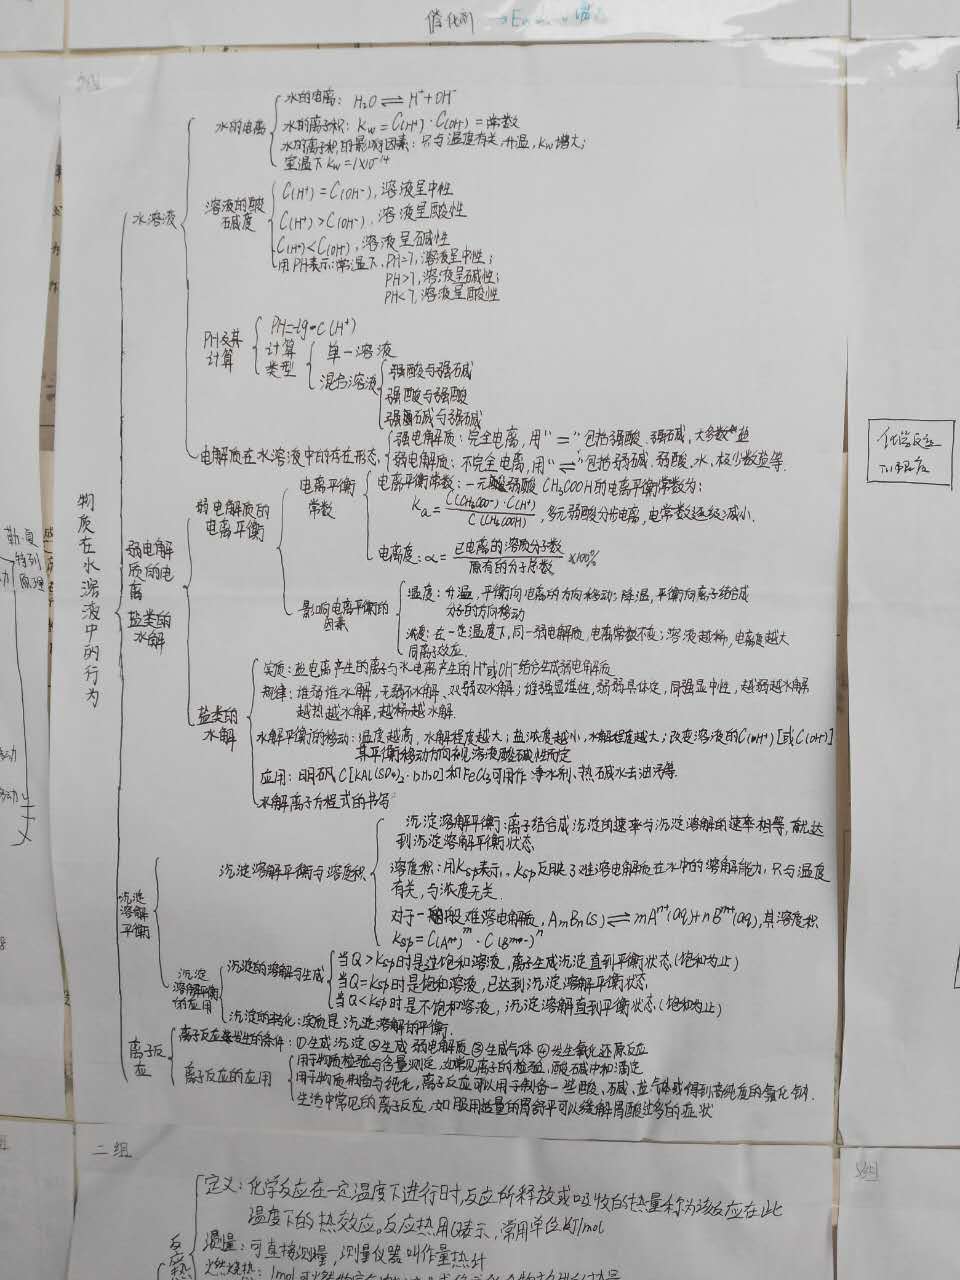 催化剂
水的电离
水的电离： H₂O ⇌ H⁺+OH⁻
水的离子积： Kw = C(H⁺)·C(OH⁻) = 常数
水的离子积的影响因素：只与温度有关,升温,Kw增大;
室温下Kw=1×10⁻¹⁴
水溶液
溶液的酸
碱度
C(H⁺)=C(OH⁻),溶液呈中性
C(H⁺)>C(OH⁻),溶液呈酸性
C(H⁺)<C(OH⁻),溶液呈碱性
用PH表示:常温下, PH=7,溶液呈中性;
PH>7,溶液呈碱性;
PH<7,溶液呈酸性
PH及其
计算
PH=-lg·C(H⁺)
计算
类型
单一溶液
混合溶液
强酸与强碱
强酸与强酸
强碱与强碱
电解质在水溶液中的存在形态
强电解质：完全电离,用"="包括强酸、强碱,大多数盐
弱电解质：不完全电离,用"⇌"包括弱碱、弱酸、水、极少数盐等.
物质在水溶液中的行为
弱电解
质的电
离
盐类的
水解
弱电解质的
电离平衡
电离平衡
常数
电离平衡常数：一元弱酸 CH₃COOH的电离平衡常数为:
Ka = C(CH₃COO⁻)·C(H⁺) / C(CH₃COOH) ,多元弱酸分步电离,电常数逐级减小.
电离度：α = 已电离的溶质分子数 / 原有的分子总数 ×100%
影响电离平衡的
因素
温度：升温,平衡向电离的方向移动;降温,平衡向离子结合成
分子的方向移动
浓度：在一定温度下,同一弱电解质,电离常数不变;溶液越稀,电离度越大
同离子效应.
盐类的
水解
实质：盐电离产生的离子与水电离产生的H⁺或OH⁻结合生成弱电解质
规律：谁弱谁水解,无弱不水解、双弱双水解;谁强显谁性,弱弱具体定,同强显中性,越弱越水解
越热越水解,越稀越水解.
水解平衡的移动：温度越高,水解程度越大;盐浓度越小,水解程度越大;改变溶液的C(H⁺)[或C(OH⁻)]
其平衡移动方向视溶液酸碱性而定
应用：明矾、C[KAl(SO₄)₂·12H₂O]和FeCl₃可用作净水剂、热碱水去油污等.
水解离子方程式的书写
沉淀
溶解
平衡
沉淀溶解平衡与溶度积
沉淀溶解平衡：离子结合成沉淀的速率与沉淀溶解的速率相等,就达
到沉淀溶解平衡状态
溶度积：用Ksp表示.Ksp反映了难溶电解质在水中的溶解能力.只与温度
有关,与浓度无关.
对于一般难溶电解质,AmBn(s) ⇌ mAⁿ⁺(aq)+nBᵐ⁺(aq),其溶度积
Ksp=C(Aⁿ⁺)ᵐ·C(Bᵐ⁻)ⁿ
沉淀
溶解平衡
的应用
沉淀的溶解与生成
当Q>Ksp时是过饱和溶液,离子生成沉淀直到平衡状态(饱和为止)
当Q=Ksp时是饱和溶液,已达到沉淀溶解平衡状态
当Q<Ksp时是不饱和溶液,沉淀溶解直到平衡状态(饱和为止)
沉淀的转化:实质是沉淀溶解的平衡.
离子反
应
离子反应发生的条件：①生成沉淀②生成弱电解质③生成气体④发生氧化还原反应
离子反应的应用
用于物质检验与含量测定,如常见离子的检验,酸碱中和滴定
用于物质制备与纯化,离子反应可以用于制备一些酸、碱、盐、气体或得到高纯度的氯化钠.
生活中常见的离子反应,如服用适量的胃舒平可以缓解胃酸过多的症状
勒·夏
特列
原理
化学反应
二组
反应热
定义：化学反应在一定温度下进行时,反应所释放或吸收的热量称为该反应在此
温度下的热效应。反应热用Q表示,常用单位kJ/mol
测量：可直接测量,测量仪器叫作量热计